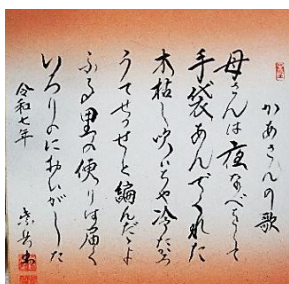 かあさんの歌
母さんは夜なべをして
手袋あんでくれた
木枯し吹いちゃ冷たかろ
うてせっせと編んだよ
ふる里の便りは届く
いろりのにおいがした
令和七年